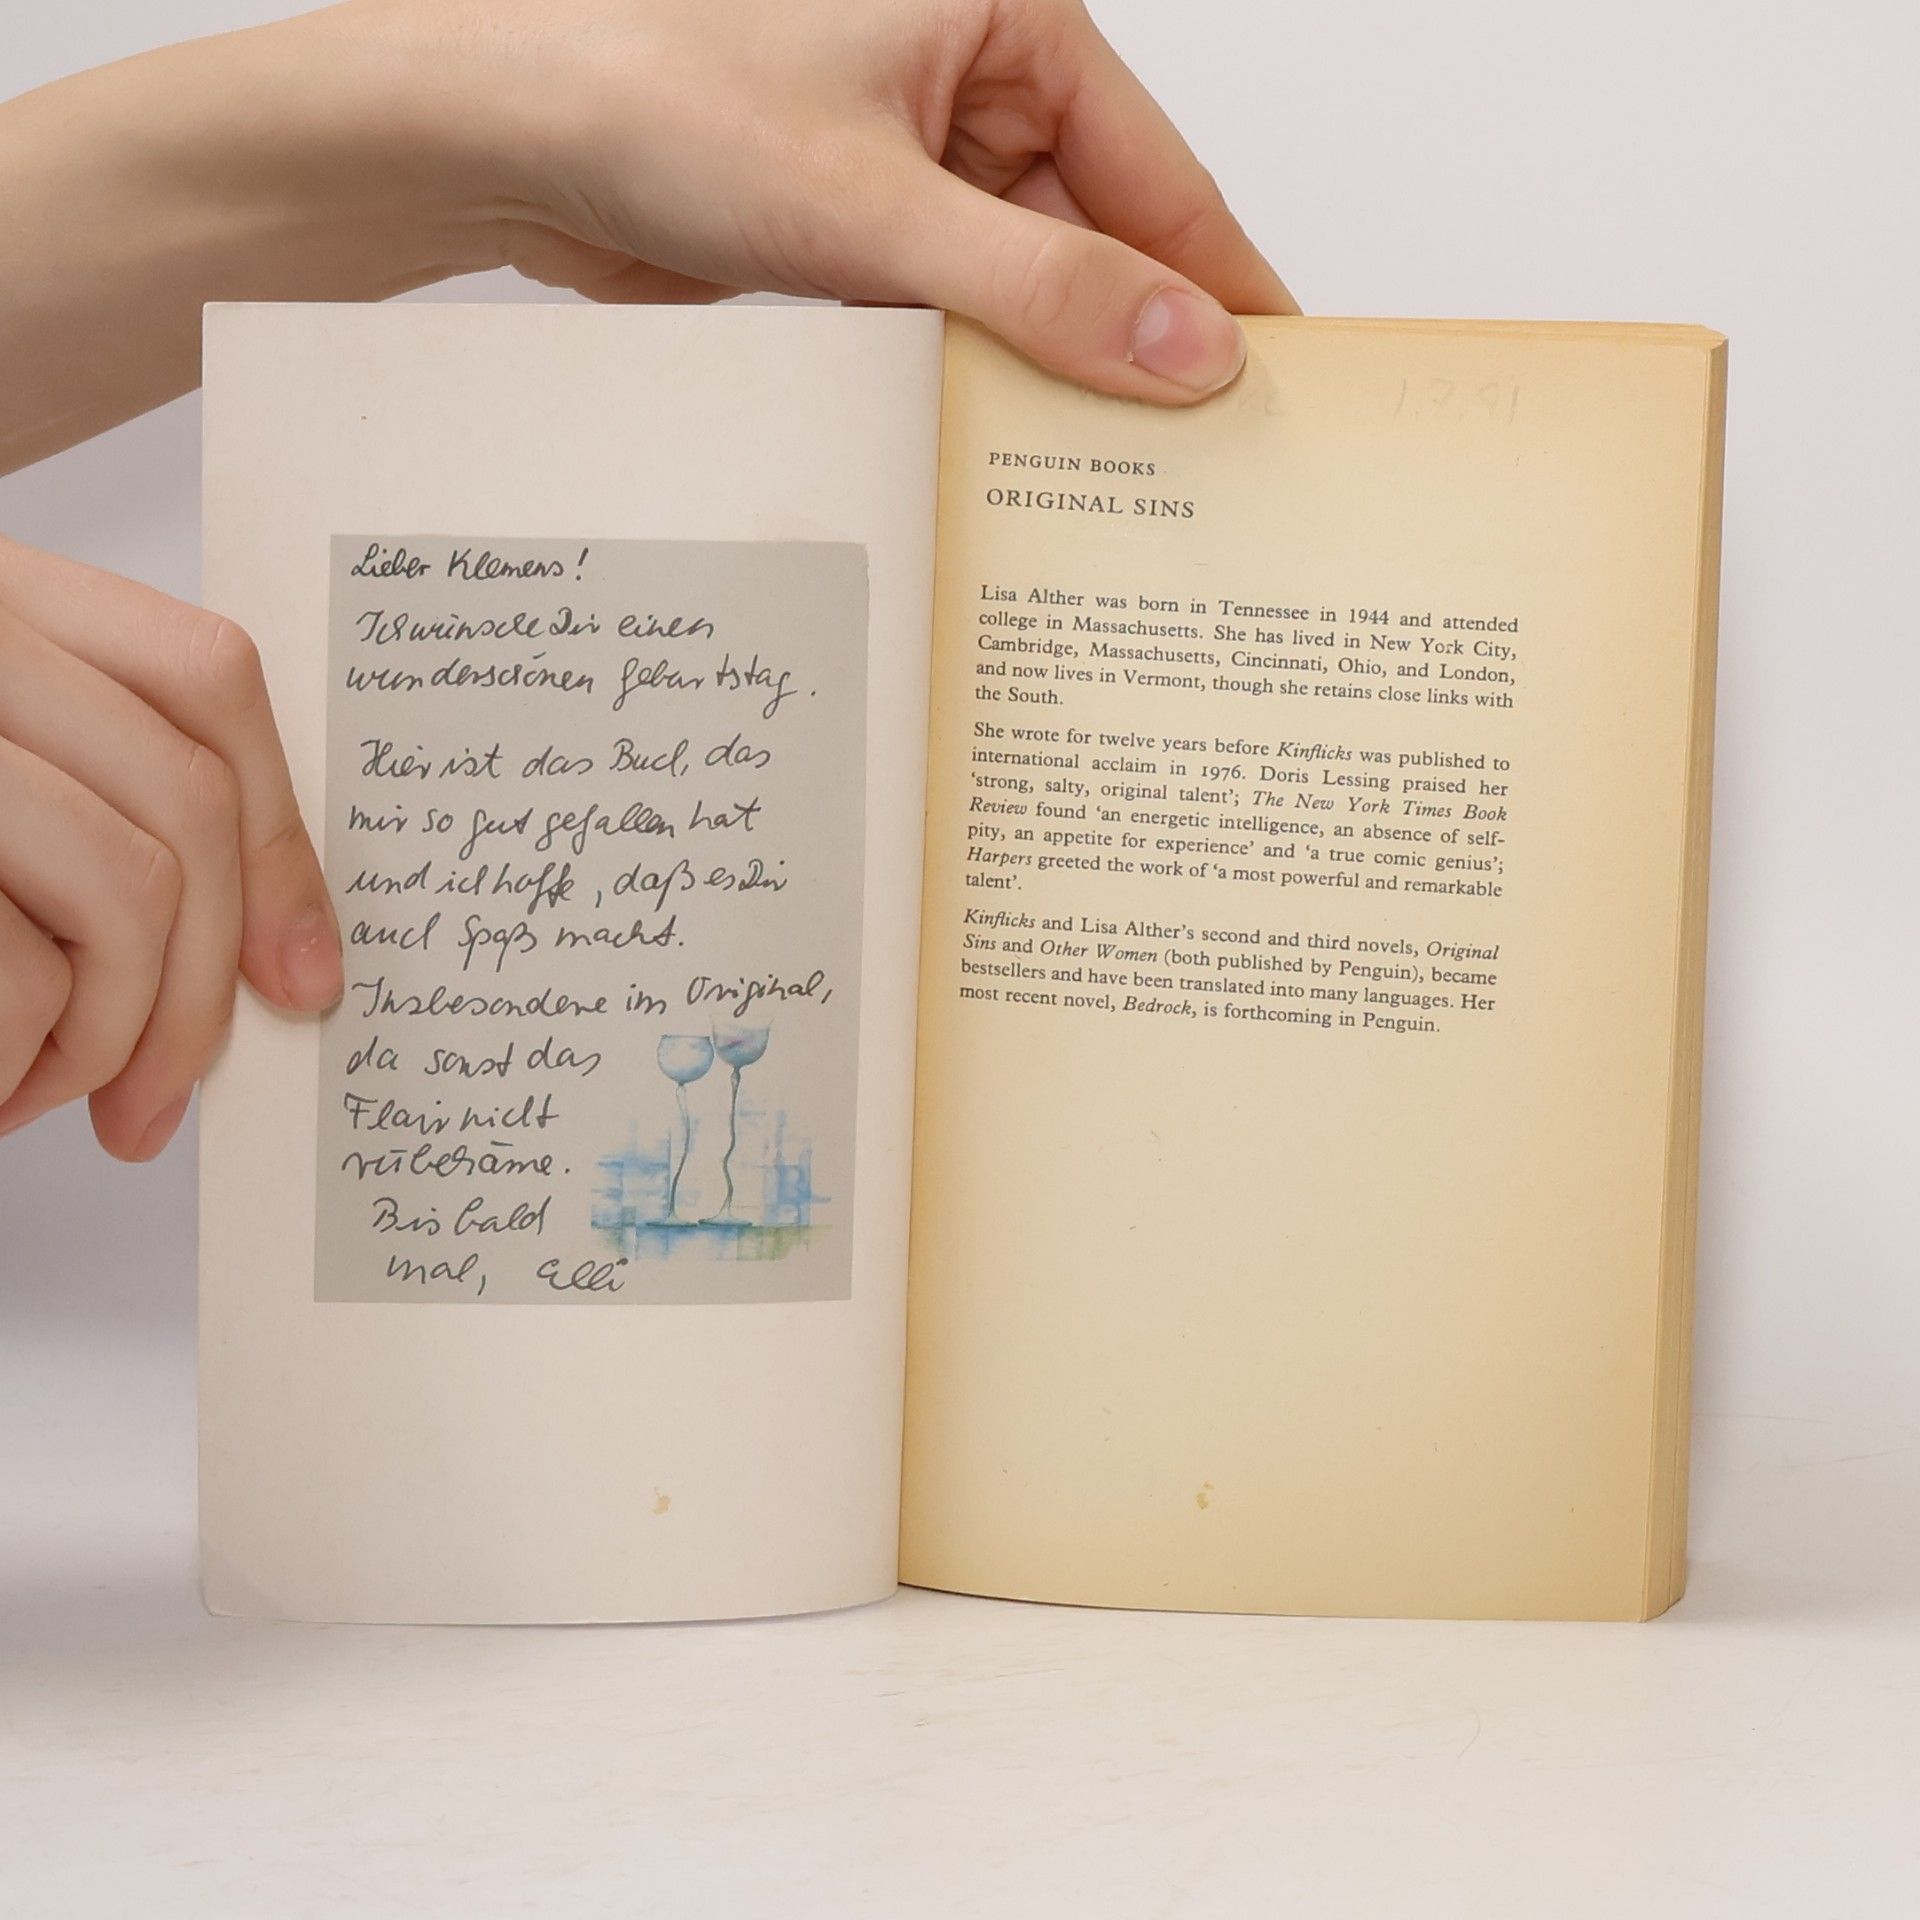 Lieber Klemens!
Ich wünsche Dir einen
wunderschönen Geburtstag.
Hier ist das Buch, das
mir so gut gefallen hat
und ich hoffe, daß es Dir
auch Spaß macht.
Insbesondere im Original,
da sonst das
Flair nicht
rüberkäme.
Bis bald
mal, Elli
PENGUIN BOOKS
ORIGINAL SINS
Lisa Alther was born in Tennessee in 1944 and attended
college in Massachusetts. She has lived in New York City,
Cambridge, Massachusetts, Cincinnati, Ohio, and London,
and now lives in Vermont, though she retains close links with
the South.
She wrote for twelve years before Kinflicks was published to
international acclaim in 1976. Doris Lessing praised her
‘strong, salty, original talent’; The New York Times Book
Review found ‘an energetic intelligence, an absence of self-
pity, an appetite for experience’ and ‘a true comic genius’;
Harpers greeted the work of ‘a most powerful and remarkable
talent’.
Kinflicks and Lisa Alther’s second and third novels, Original
Sins and Other Women (both published by Penguin), became
bestsellers and have been translated into many languages. Her
most recent novel, Bedrock, is forthcoming in Penguin.